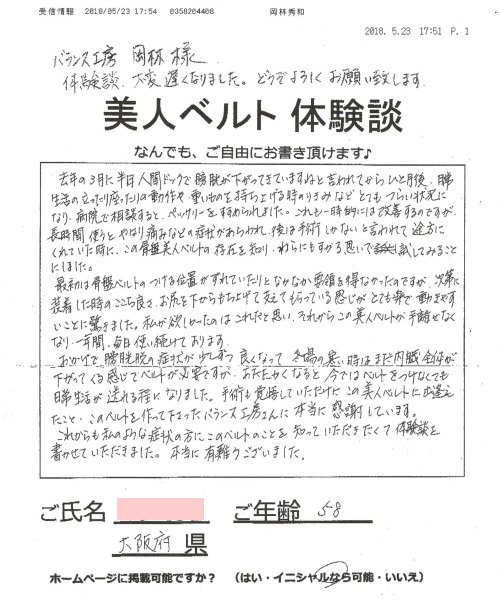 受信情報 2018/05/23 17:54 0358204408 岡林秀和
2018. 5.23 17:51 P. 1
バランス工房 岡林 様
体験談、大変遅くなりました。どうぞよろしくお願い致します。
美人ベルト 体験談
なんでも、ご自由にお書き頂けます♪
去年の3月に半日人間ドックで膀胱が下がってきていますねと言われてからひと月後、日常
生活の立ったり座ったりの動作や重いものを持ち上げる時のりきみなどとてもつらい状況に
なり、病院で相談すると、ペッサリーをすすめられました。これも一時的には改善するのですが、
長時間使うとやはり痛みなどの症状があらわれ、後は手術しかないと言われて途方に
くれていた時に、この骨盤美人ベルトの存在を知り、わらにもすがる思いで試してみること
にしました。
最初は骨盤ベルトのつける位置がずれていたりとなかなか要領を得なかったのですが、次第に
装着した時のここち良さ、お尻を下からもち上げて支えてもらっている感じがとても楽で動きやす
いことに驚きました。私が欲しかったのはこれだと思い、それからこの美人ベルトが手離せなく
なり、一年間、毎日使い続けております。
おかげで膀胱脱の症状が少しずつ良くなって、冬場の寒い時はまだ内臓全体が
下がってくる感じでベルトが必要ですが、あたたかくなると今ではベルトをつけなくても
日常生活が送れる程になりました。手術も覚悟していただけにこの美人ベルトに出逢え
たこと、このベルトを作って下さったバランス工房さんに本当に感謝しています。
これからも私のような症状の方にこのベルトのことを知っていただきたくて体験談を
書かせていただきました。本当に有難うございました。
ご氏名 ご年齢 58
大阪府 県
ホームページに掲載可能ですか? (はい・イニシャルなら可能・いいえ)